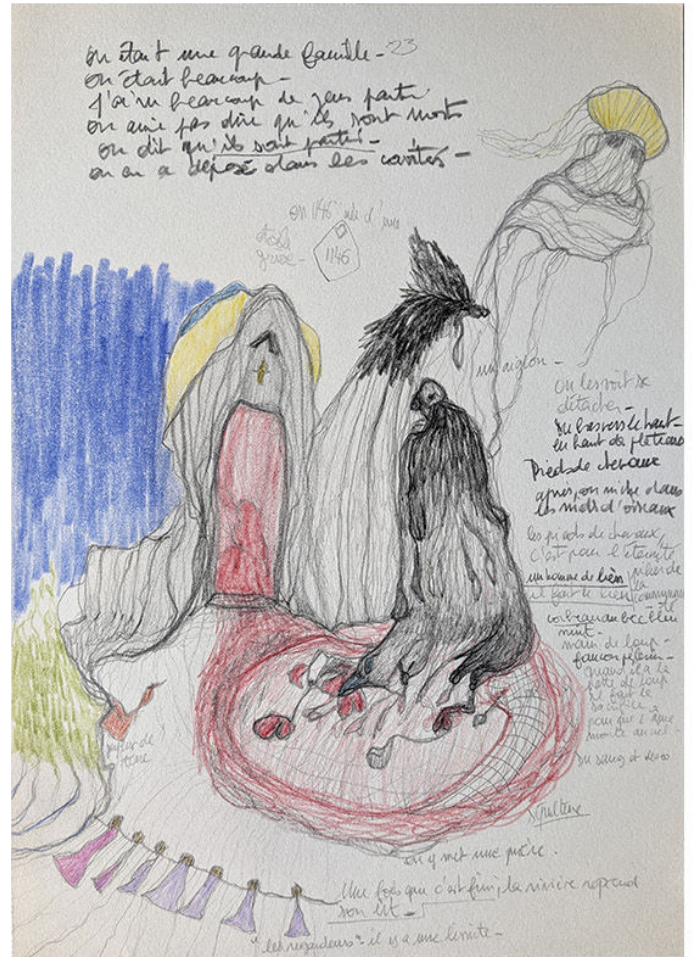 on était une grande famille - 23
on était beaucoup -
j'ai vu beaucoup de gens partir
on aime pas dire qu'ils sont morts
on dit qu'ils sont partis -
on en a déposé dans les cavités -
on 1146 née d'une
étoile
grise -
1146
un aiglon -
on les voit se
détacher -
du bas vers le haut -
en haut de plateaux
Pieds de chevaux
après, on niche dans
les nids d'oiseaux
les pieds de chevaux,
c'est pour l'éternité
un homme de lien
il fait le lien
corbeau au bec bleu
main de loup -
faucon pèlerin -
quand il a la
patte de loup
il fait le
sacrifice
pour que l'âme
monte au ciel -
du sang et des os
sépulture
on y met une prière.
Une fois que c'est fini, la rivière reprend
son lit -
"les regardeurs" - il y a une limite -